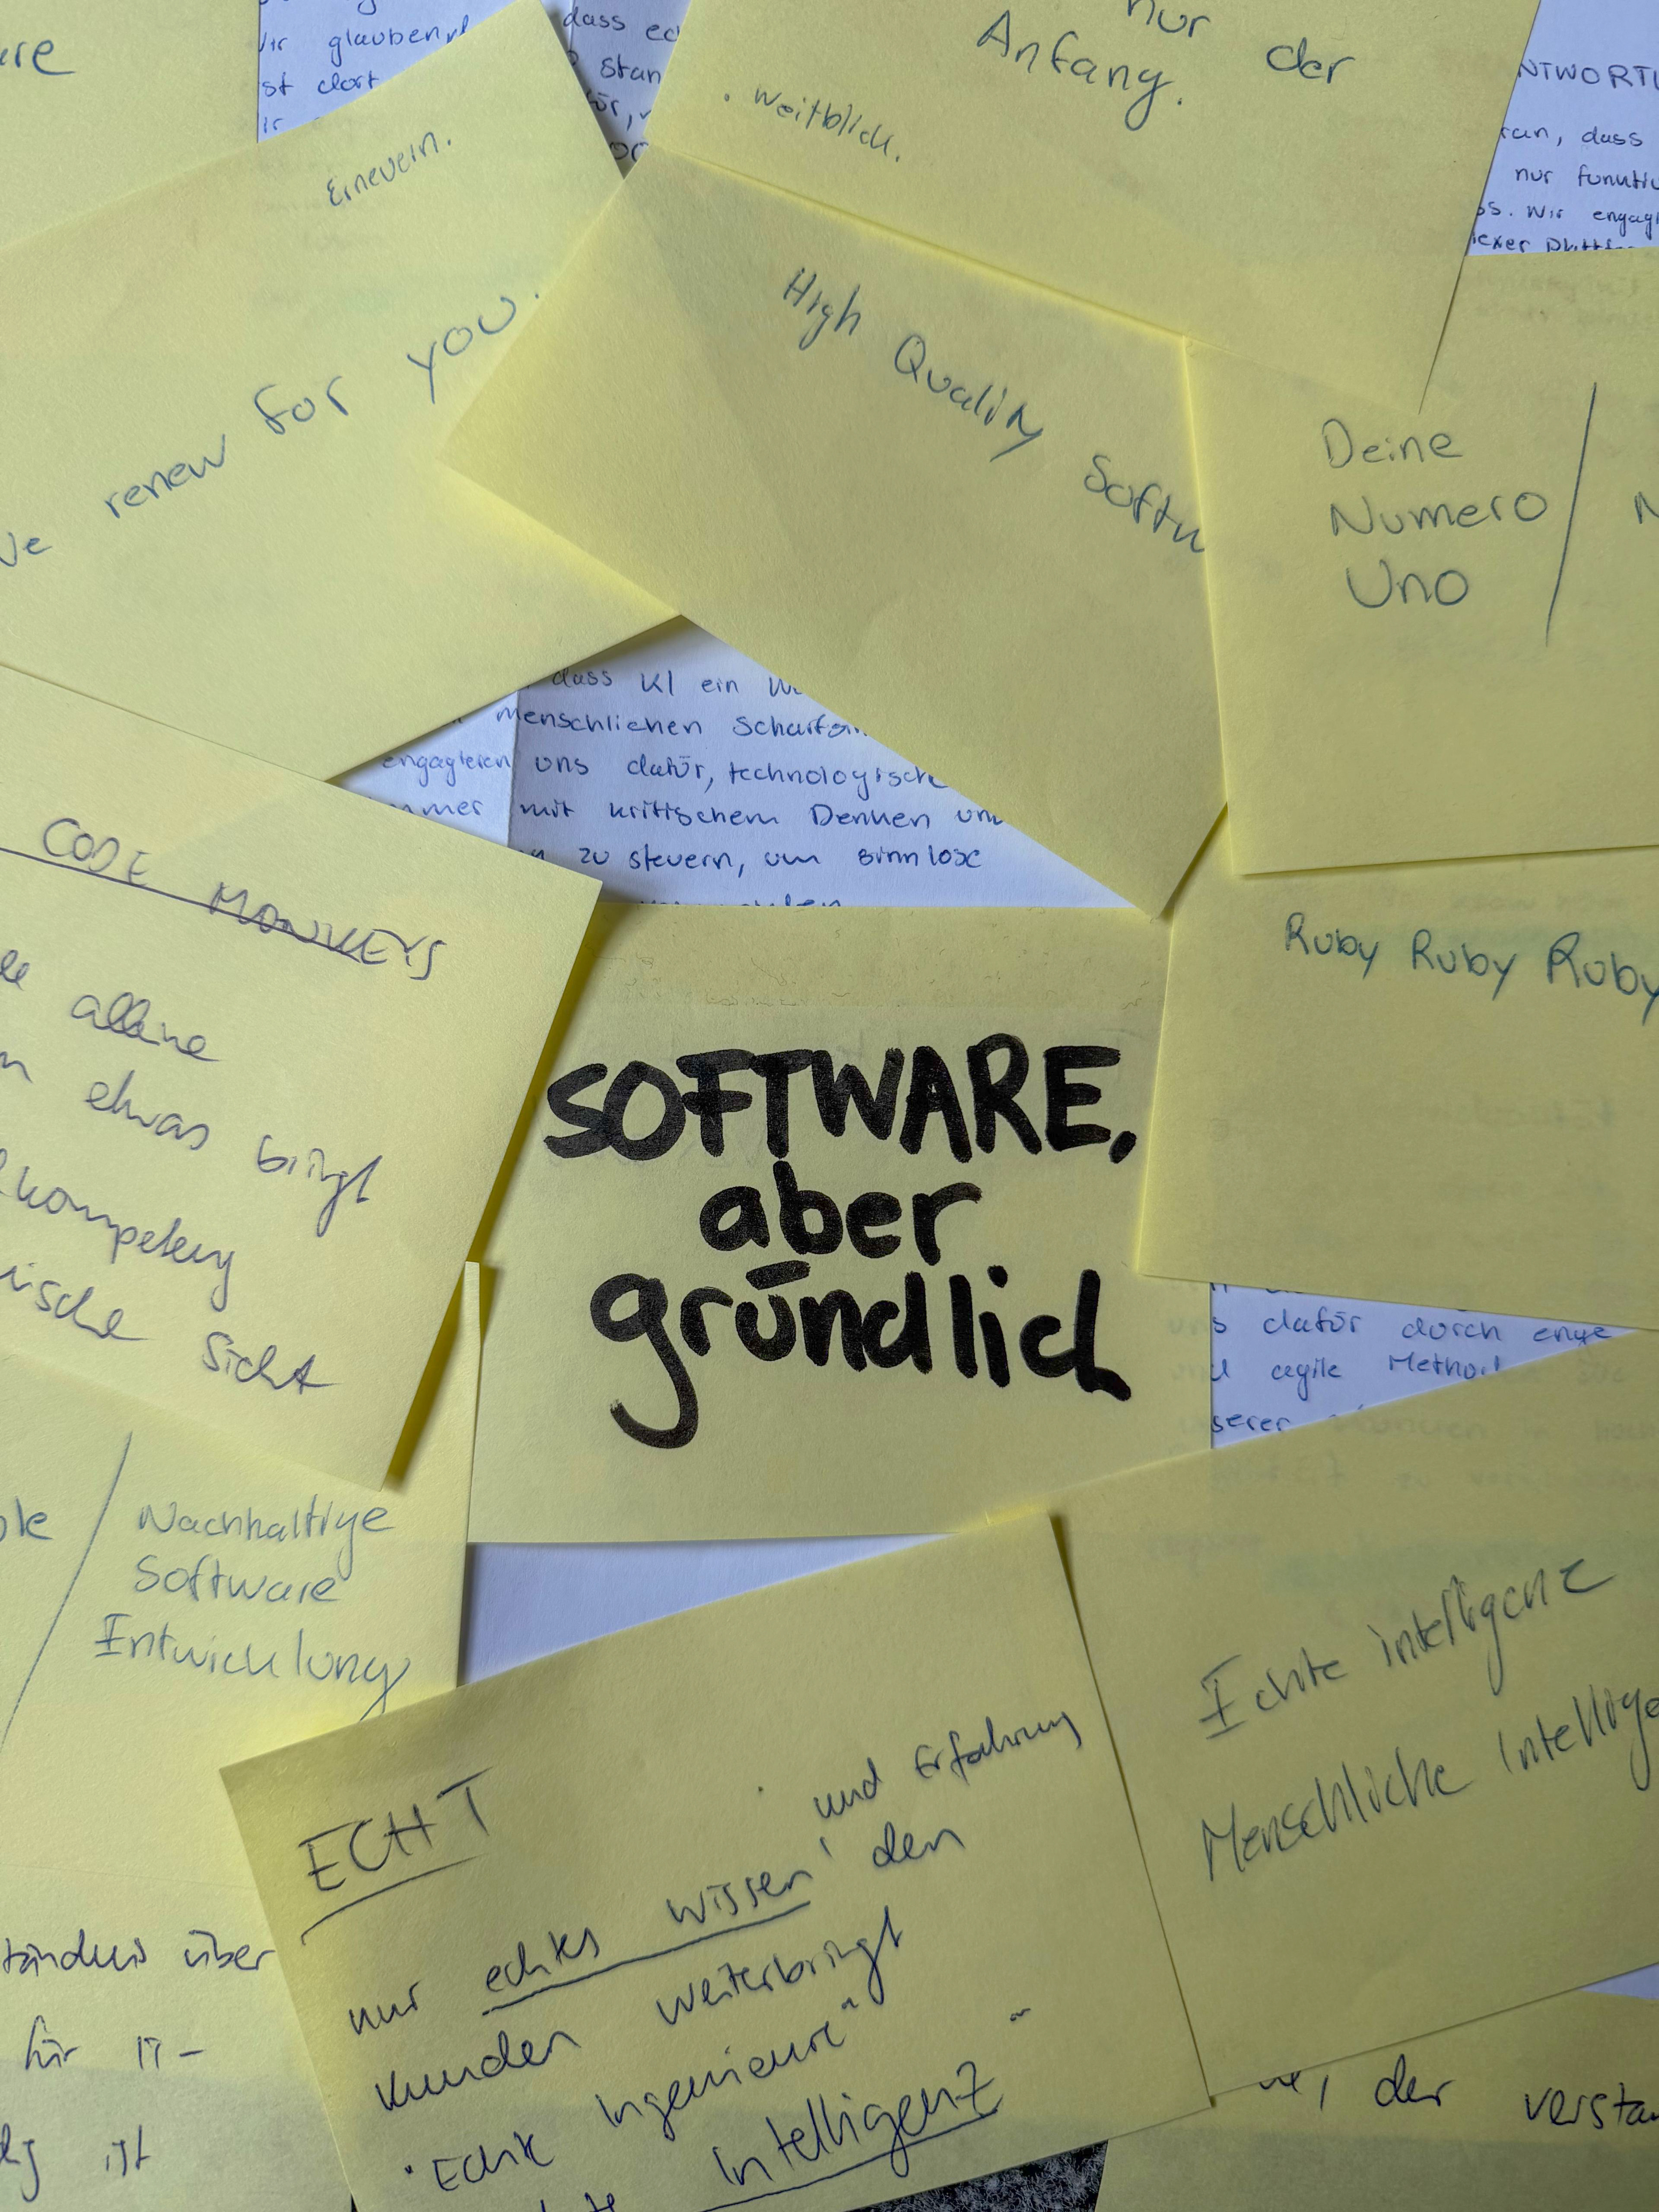 nur der
Anfang.
. Weitblick.
glauben
dass
ist dort
Erneuern.
renew for you.
High Quality Softw
NTWORTU
ran, dass
nur funktio
ss. Wir engag
Deine
Numero
Uno
dass KI ein
menschlichen Scharfsin
engagieren uns dafür, technologische
mmer mit kritischem Denken un
zu steuern, um sinnlose
CODE MONKEYS
alleine
etwas bringt
kompetenz
ische Sicht
Ruby Ruby Ruby
SOFTWARE,
aber
gründlich
uns dafür durch enge
und agile Method
nserer
Nachhaltige
Software
Entwicklung
Echte intelligenz
Menschliche Intellige
ECHT
und Erfahrung
nur echtes Wissen den
Kunden weiterbringt
• Echte Ingenieure"
Intelligenz
tändnis über
für IT-
ist
, der versta